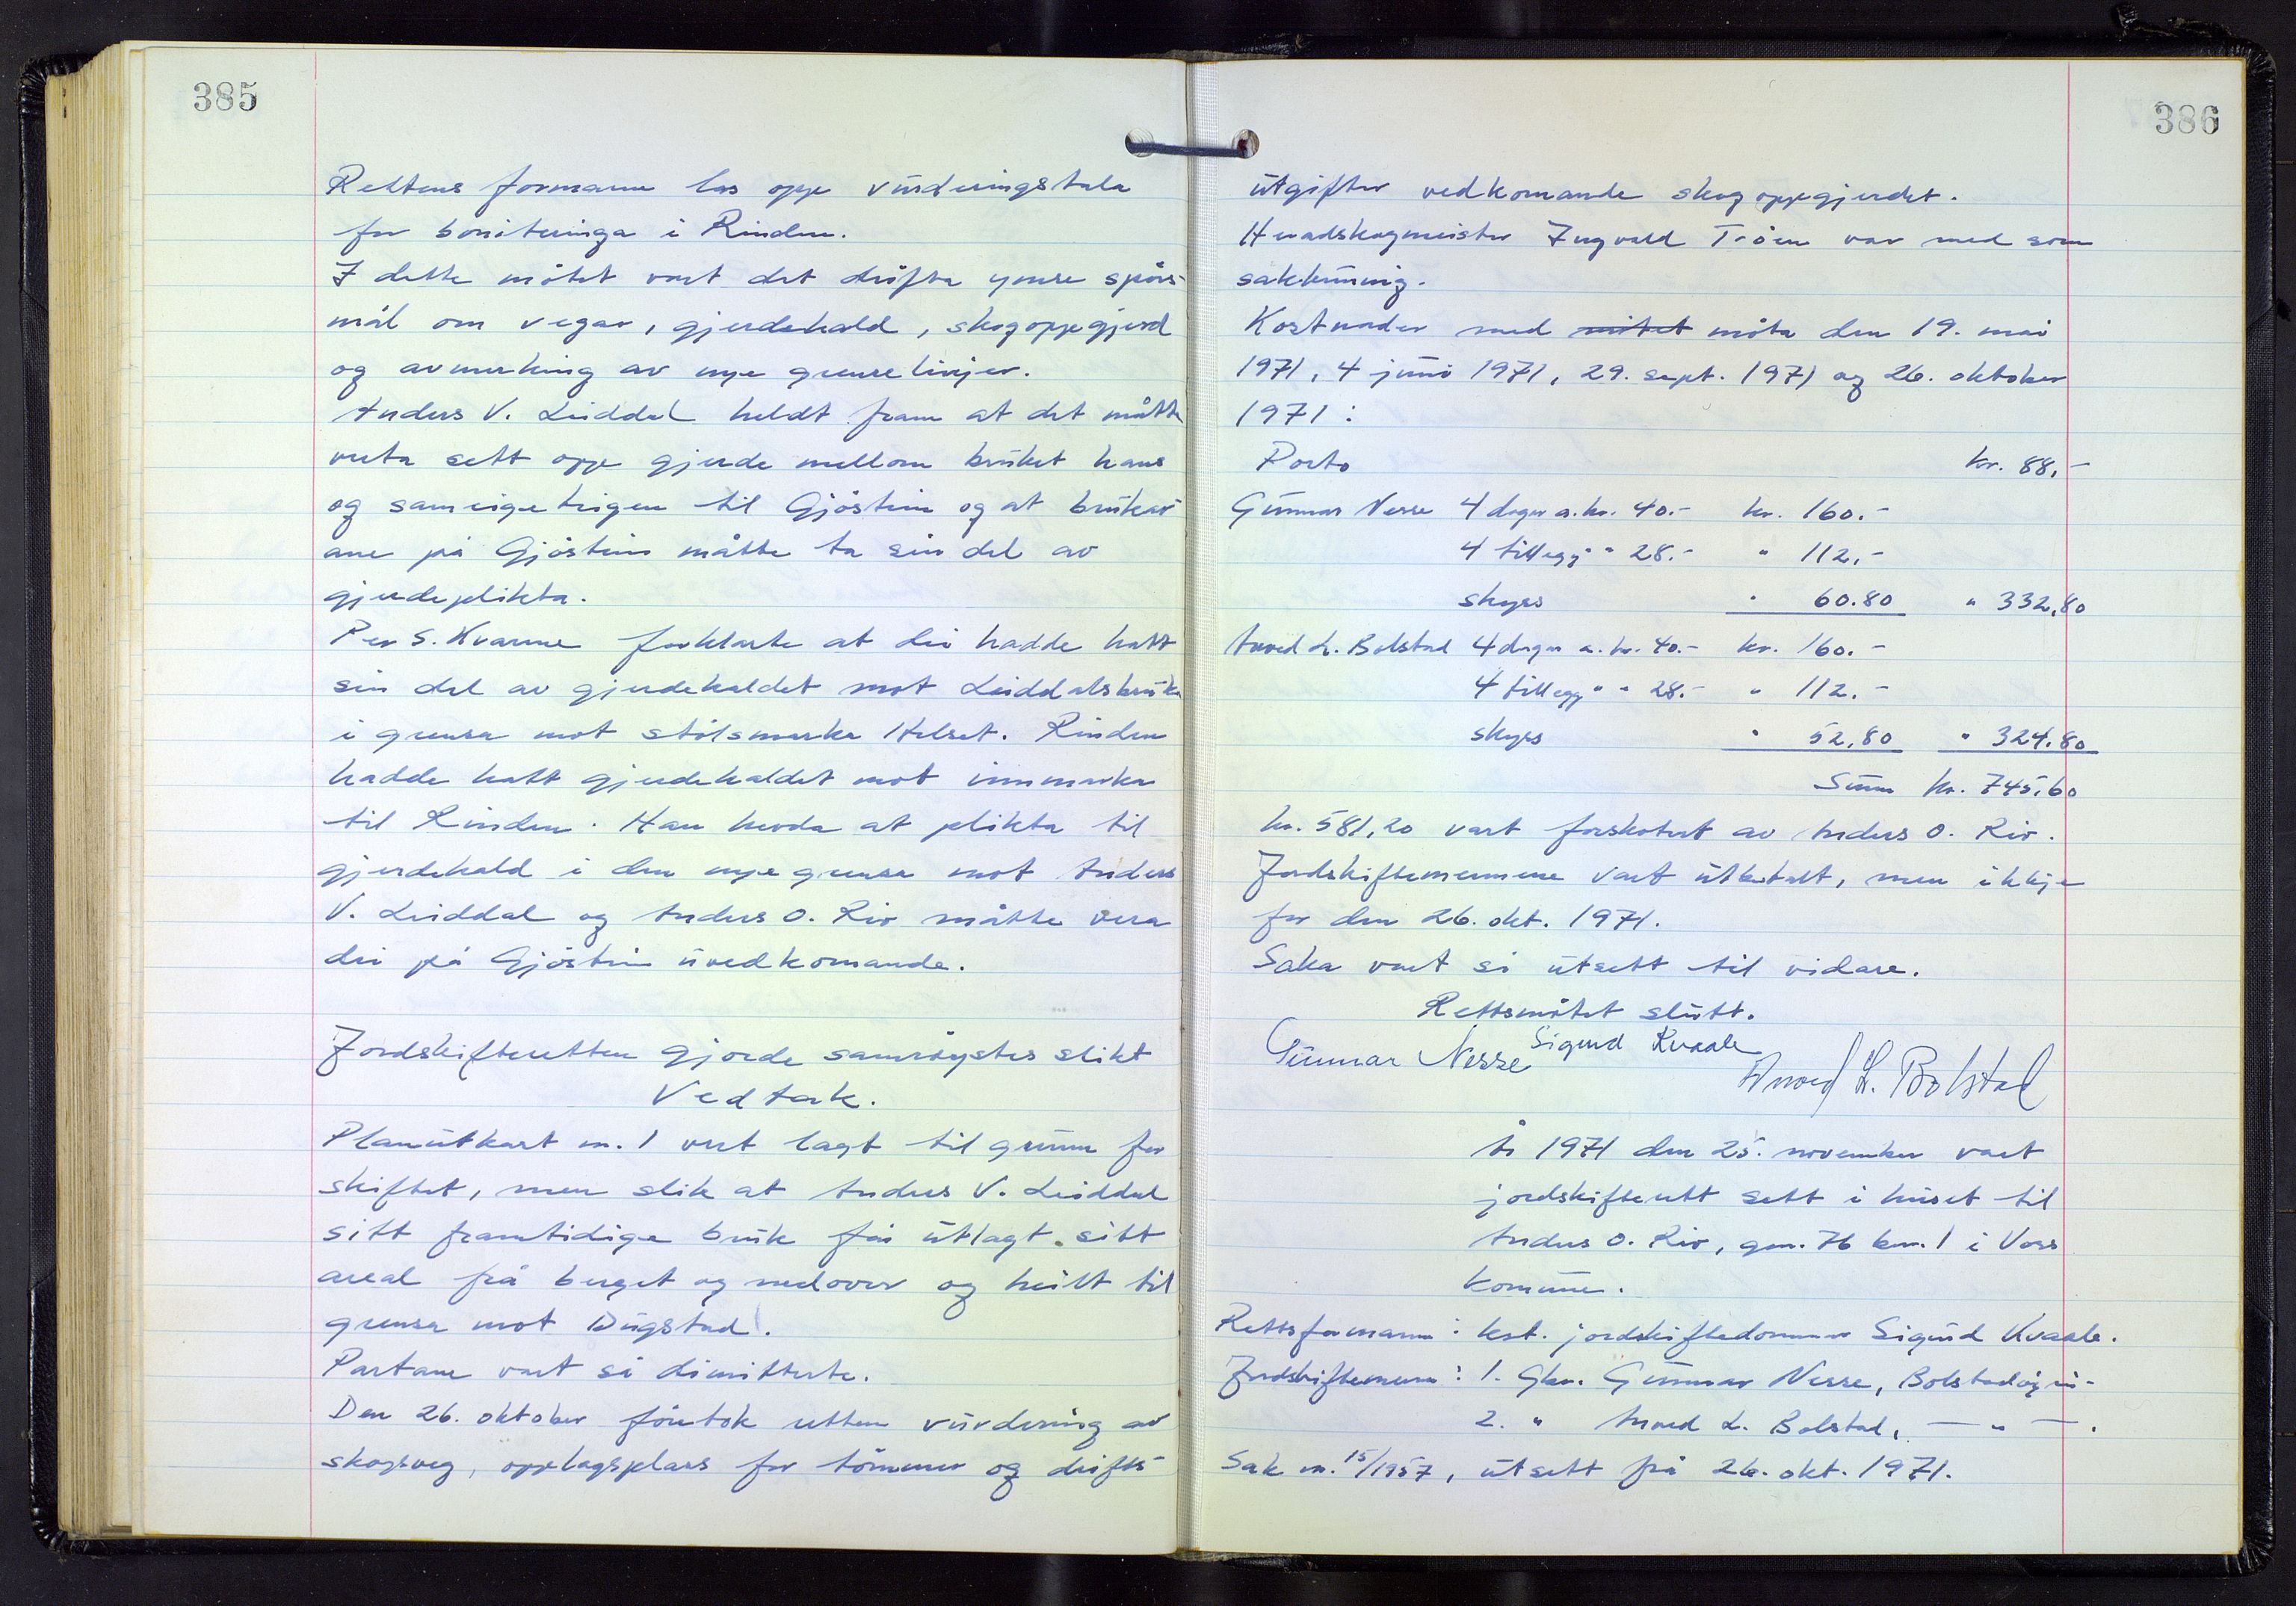 385
Rettens formann las opp vurderingstala
for boniteringa i Rinden.
I dette møtet vart det drøfta ymse spørs-
mål om vegar, gjerdehald, skogoppgjerd
og avmerking av nye grenselinjer.
Anders V. Liddal heldt fram at det måtte
verta sett opp gjerde mellom bruket hans
og sameigeteigen til Gjøstein og at brukar-
ane på Gjøstein måtte ta sin del av
gjerdeplikta.
Per S. Kvarme forklarte at dei hadde hatt
sin del av gjerdehaldet mot Liddalsbruka
i grensa mot stølsmarka Helset. Rinden
hadde hatt gjerdehaldet mot innmarka
til Rinden. Han hevda at plikta til
gjerdehald i den nye grensa mot Anders
V. Liddal og Anders O. Rio måtte vera
dei på Gjøstein uvedkomande.
Jordskifteretten gjorde samrøystes slikt
Vedtak.
Planutkast nr. 1 vert lagt til grunn for
skiftet, men slik at Anders V. Liddal
sitt framtidige bruk får utlagt sitt
areal frå berget og nedover og heilt til
grensa mot Dugstad.
Partane vart så dimitterte.
Den 26. oktober føretok retten vurdering av
skogsveg, opplagsplass for tømmer og drifts-
386
utgifter vedkomande skogoppgjerdet.
Heradskogmeister Ingvald Trøen var med som
sakkunnig.
Kostnader med møtet møta den 19. mai
1971, 4 juni 1971, 29. sept. 1971 og 26. oktober
1971:
Porto kr. 88,-
Gunnar Nesse 4 dagar a. kr. 40.- kr. 160.-
4 tillegg " " 28.- " 112,-
skyss " 60.80 " 332,80
Arved L. Bolstad 4 dagar a. kr. 40.- kr. 160.-
4 tillegg " " 28.- " 112.-
skyss " 52,80 " 324.80
Sum kr. 745,60
kr. 581,20 vart forskotert av Anders O. Rio.
Jordskiftemennene vart utbetalt, men ikkje
for den 26. okt. 1971.
Saka vart så utsett til vidare.
Rettsmøtet slutt.
Sigurd Kvaale
Gunnar Nesse
Arved L. Bolstad
År 1971 den 25. november vart
jordskifterett sett i huset til
Anders O. Rio, gnr. 76 bnr. 1 i Voss
kommune.
Rettsformann: kst. jordskiftedommar Sigurd Kvaale.
Jordskiftemenn: 1. Gbr. Gunnar Nesse, Bolstadøyri-
2. " Arved L. Bolstad, — " — .
Sak nr. 15/1957, utsett frå 26. okt. 1971.